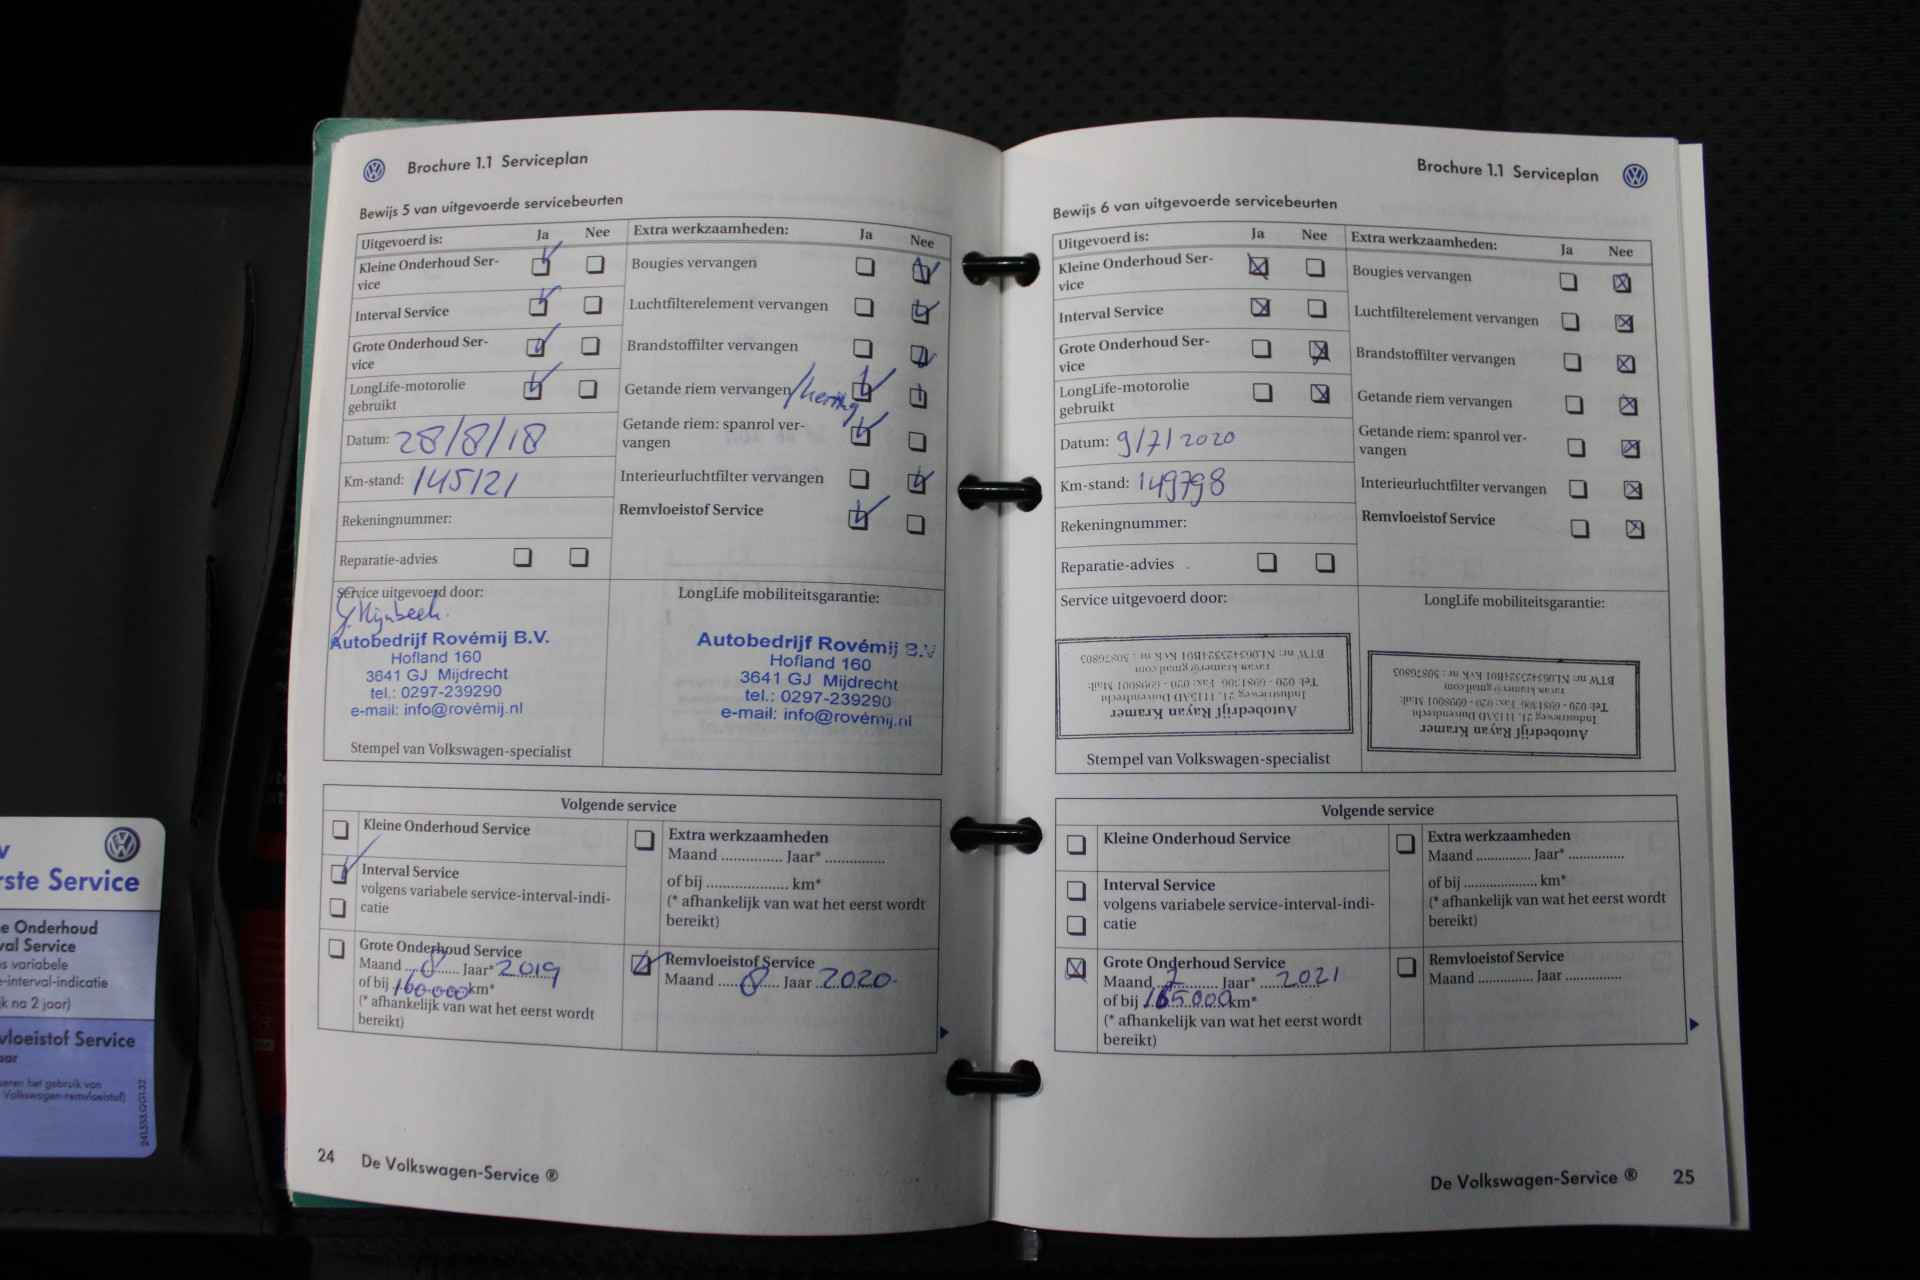 Brochure 1.1 Serviceplan
Bewijs 5 van uitgevoerde servicebeurten
Uitgevoerd is: Ja Nee
Kleine Onderhoud Ser-
vice
Interval Service
Grote Onderhoud Ser-
vice
LongLife-motorolie
gebruikt
Datum: 28/8/18
Km-stand: 145121
Rekeningnummer:
Reparatie-advies
Extra werkzaamheden: Ja Nee
Bougies vervangen
Luchtfilterelement vervangen
Brandstoffilter vervangen
Getande riem vervangen
Getande riem: spanrol ver-
vangen
Interieurluchtfilter vervangen
Remvloeistof Service
Service uitgevoerd door:
Autobedrijf Rovémij B.V.
Hofland 160
3641 GJ Mijdrecht
tel.: 0297-239290
e-mail: info@rovémij.nl
Stempel van Volkswagen-specialist
LongLife mobiliteitsgarantie:
Autobedrijf Rovémij B.V
Hofland 160
3641 GJ Mijdrecht
tel.: 0297-239290
e-mail: info@rovémij.nl
Volgende service
Kleine Onderhoud Service
Interval Service
volgens variabele service-interval-indi-
catie
Grote Onderhoud Service
Maand ...8...... Jaar* 2019
of bij 160000 km*
(* afhankelijk van wat het eerst wordt
bereikt)
Extra werkzaamheden
Maand ............... Jaar* ...............
of bij ..................... km*
(* afhankelijk van wat het eerst wordt
bereikt)
Remvloeistof Service
Maand ......8.... Jaar 2020
24 De Volkswagen-Service ®
Brochure 1.1 Serviceplan
Bewijs 6 van uitgevoerde servicebeurten
Uitgevoerd is: Ja Nee
Kleine Onderhoud Ser-
vice
Interval Service
Grote Onderhoud Ser-
vice
LongLife-motorolie
gebruikt
Datum: 9/7/2020
Km-stand: 149798
Rekeningnummer:
Reparatie-advies
Extra werkzaamheden: Ja Nee
Bougies vervangen
Luchtfilterelement vervangen
Brandstoffilter vervangen
Getande riem vervangen
Getande riem: spanrol ver-
vangen
Interieurluchtfilter vervangen
Remvloeistof Service
Service uitgevoerd door:
Autobedrijf Rayan Kramer
Industrieweg 21, 1115AD Duivendrecht
Tel: 020 - 6981306 Fax: 020 - 6998001 Mail:
rayan.kramer@gmail.com
Stempel van Volkswagen-specialist
LongLife mobiliteitsgarantie:
Autobedrijf Rayan Kramer
Industrieweg 21, 1115AD Duivendrecht
Tel: 020 - 6981306 Fax: 020 - 6998001 Mail:
rayan.kramer@gmail.com
Volgende service
Kleine Onderhoud Service
Interval Service
volgens variabele service-interval-indi-
catie
Grote Onderhoud Service
Maand ......7......... Jaar* ....2021
of bij 165000 km*
(* afhankelijk van wat het eerst wordt
bereikt)
Extra werkzaamheden
Maand .............. Jaar* ..............
of bij ................... km*
(* afhankelijk van wat het eerst wordt
bereikt)
Remvloeistof Service
Maand .............. Jaar ..............
De Volkswagen-Service ® 25
rste Service
e Onderhoud
val Service
s variabele
e-interval-indicatie
jk na 2 jaar)
vloeistof Service
aar
seren het gebruik van
Volkswagen-remvloeistof)